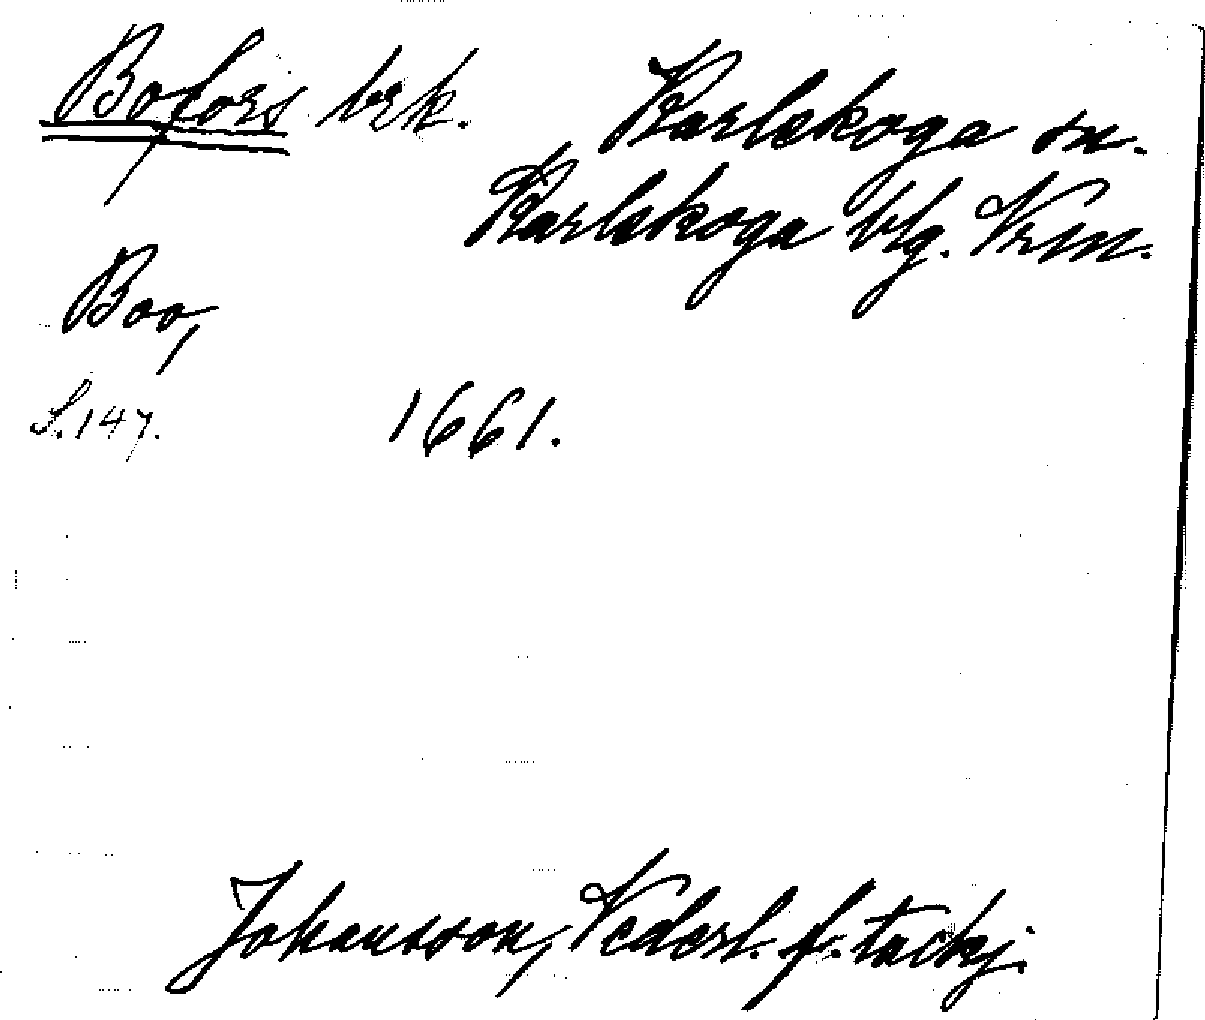 Bofors brk. Karlskoga sn.
Karlskoga blg. Vrm.
Boo,
S. 147. 1661.
Johansson, Vederl. f. tackj.